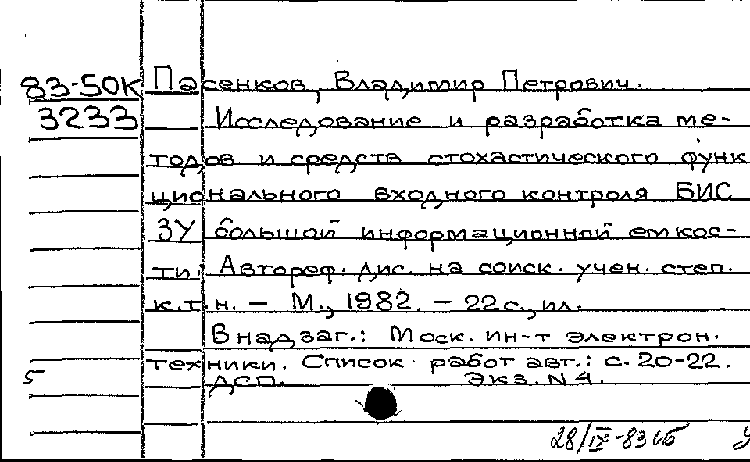 83-50К Пасенков, Владимир Петрович.
3233 Исследование и разработка ме-
тодов и средств стохастического функ
ционального входного контроля БИС
ЗУ большой информационной емкос-
ти: Автореф. дис. на соиск. учен. степ.
к.т.н. – М., 1982. – 22 с., ил.
В надзаг.: Моск. ин-т электрон.
техники. Список работ авт.: с. 20-22.
5 ДСП. Экз. N 4.
28/IX-83